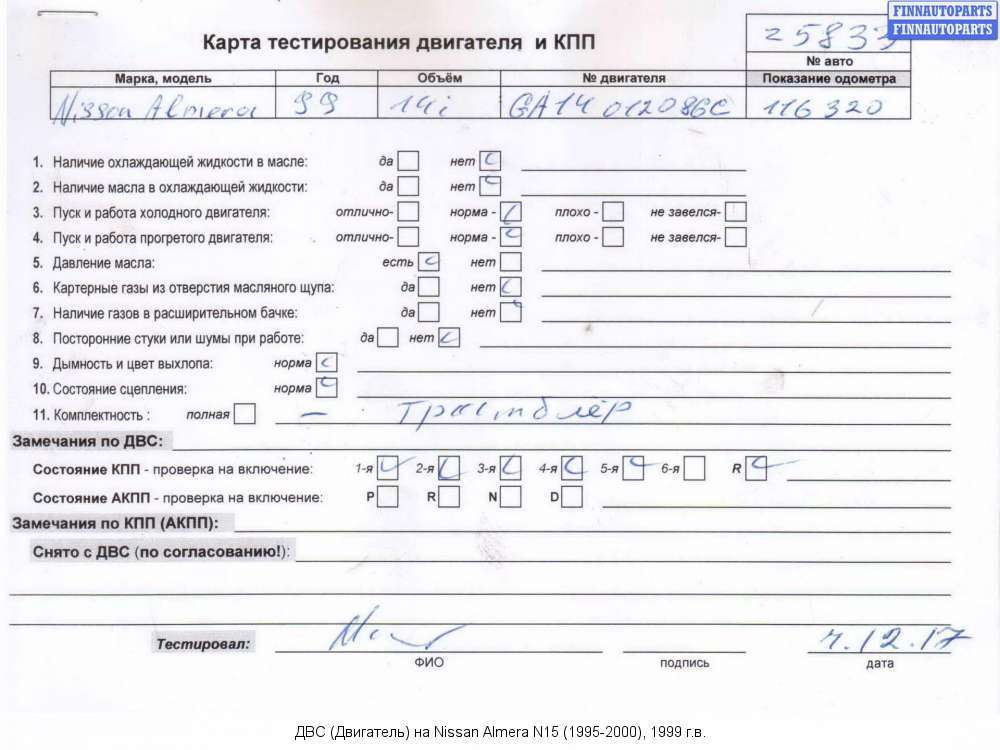 FINNAUTOPARTS
FINNAUTOPARTS
25833
Карта тестирования двигателя и КПП
№ авто
Марка, модель Год Объём № двигателя Показание одометра
Nissan Almera 99 14i GA14 012086C 116 320
1. Наличие охлаждающей жидкости в масле: да нет
2. Наличие масла в охлаждающей жидкости: да нет
3. Пуск и работа холодного двигателя: отлично- норма - плохо - не завелся-
4. Пуск и работа прогретого двигателя: отлично- норма - плохо - не завелся-
5. Давление масла: есть нет
6. Картерные газы из отверстия масляного щупа: да нет
7. Наличие газов в расширительном бачке: да нет
8. Посторонние стуки или шумы при работе: да нет
9. Дымность и цвет выхлопа: норма
10. Состояние сцепления: норма
11. Комплектность : полная – трамблёр
Замечания по ДВС:
Состояние КПП - проверка на включение: 1-я 2-я 3-я 4-я 5-я 6-я R
Состояние АКПП - проверка на включение: P R N D
Замечания по КПП (АКПП):
Снято с ДВС (по согласованию!):
Тестировал: 4.12.17
ФИО подпись дата
ДВС (Двигатель) на Nissan Almera N15 (1995-2000), 1999 г.в.